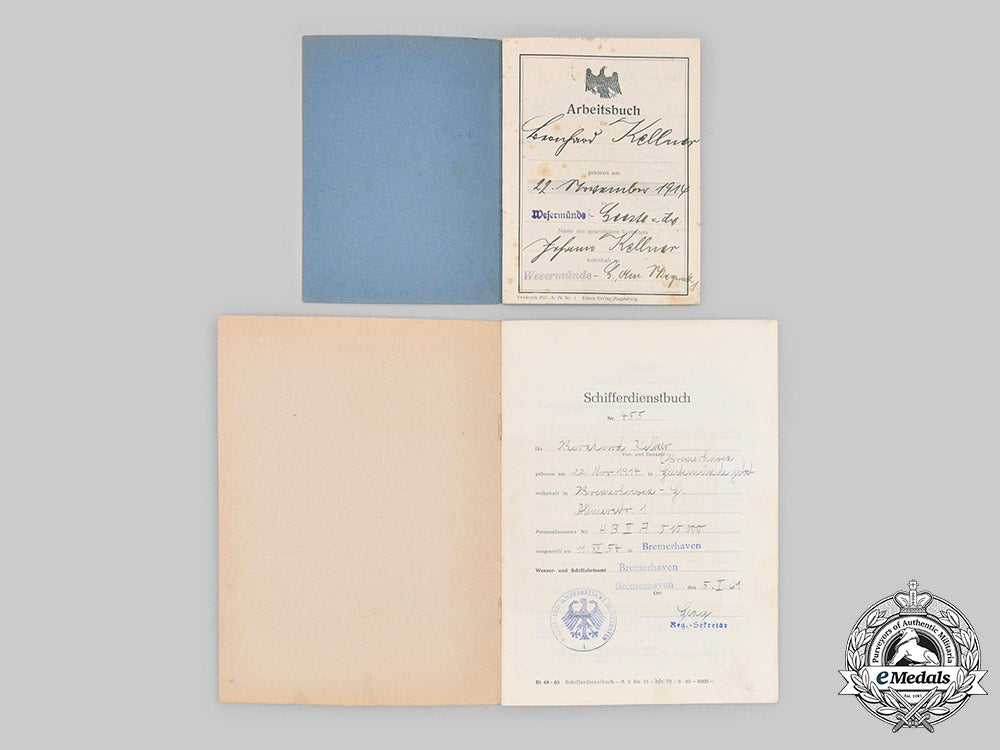 Arbeitsbuch
für
Bernhard Kellner
geboren am
22. November 1914
Wesermünde -
Name des gesetzlichen Vertreters
Johann Kellner
wohnhaft in
Wesermünde - G., Am
Vordruck Pol. A. IV Nr. 1 Eilers Verlag, Magdeburg
Schifferdienstbuch
Nr. 455
für Bernhard Kellner
Vor- und Zuname
Bremerhaven
geboren am 22 Nov 1914 in Geestemünde jetzt
wohnhaft in Bremerhaven - G.
1
Personalausweis Nr. H B II A
ausgestellt am 11 XI 54 in Bremerhaven
Wasser- und Schiffahrtsamt Bremerhaven
Bremerhaven den 5. I 61
Ort
Reg.-Sekretär
WASSER- UND SCHIFFAHRTSAMT BREMERHAVEN
1
Bi 49 - 03 Schifferdienstbuch — A 5 Bu 31 —
Purveyors of Authentic Militaria
eMedals